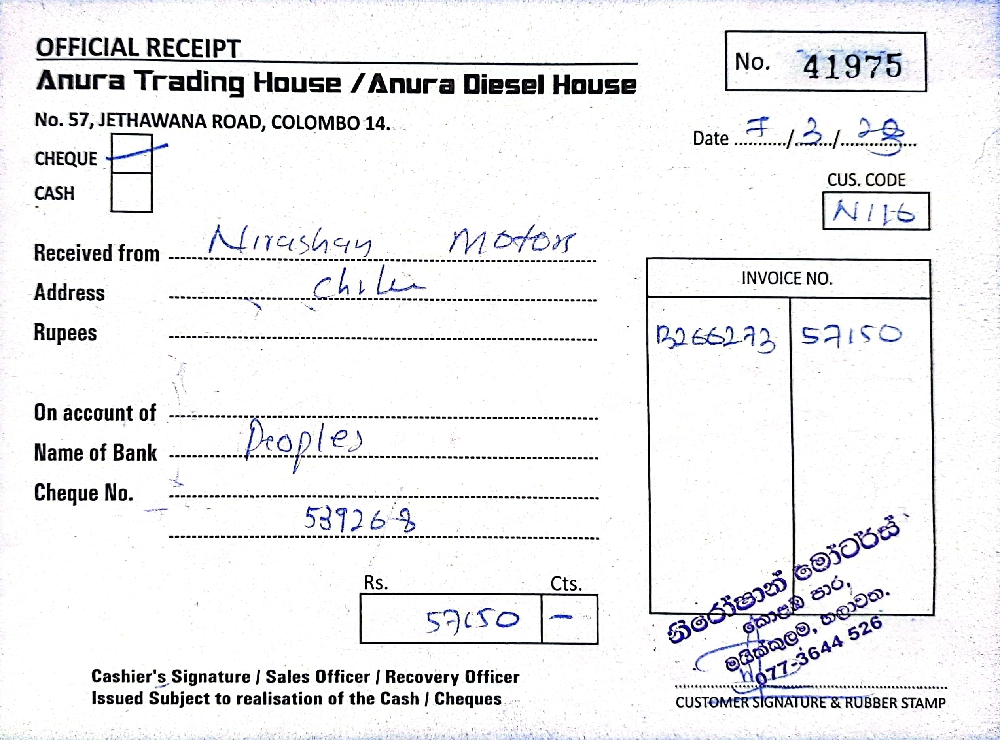 OFFICIAL RECEIPT
Anura Trading House / Anura Diesel House
No. 57, JETHAWANA ROAD, COLOMBO 14.
No. 41975
Date 7/3/
CHEQUE
CASH
CUS. CODE
N116
Received from Nirashan Motors
Address
Rupees
On account of
Name of Bank Peoples
Cheque No.
539268
INVOICE NO.
B266273 57150
Rs. Cts.
57150 –
Cashier's Signature / Sales Officer / Recovery Officer
Issued Subject to realisation of the Cash / Cheques
නිරෝෂාන් මෝටර්ස්
කොළඹ පාර,
මයික්කුලම, හලාවත.
077-3644 526
CUSTOMER SIGNATURE & RUBBER STAMP